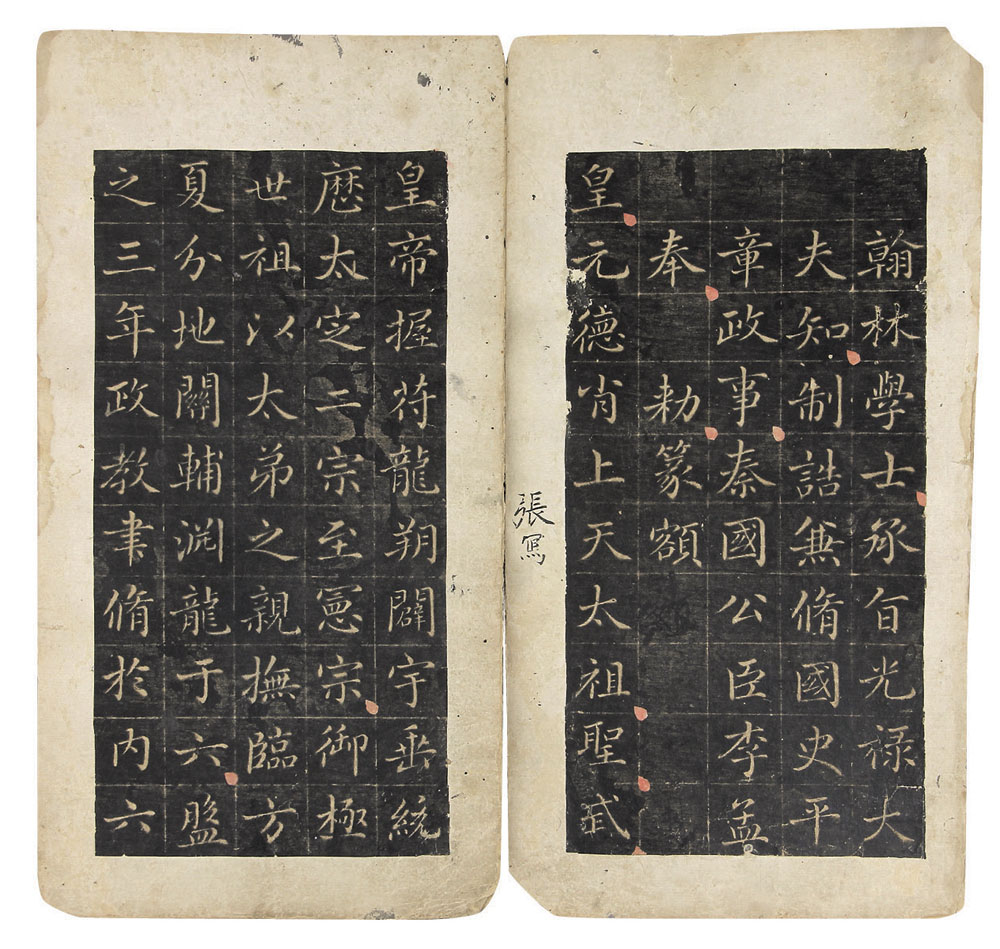 翰林學士承旨光祿大
夫知制誥兼脩國史平
章政事秦國公臣李孟
奉敕篆額
皇元德肖上天太祖聖武
皇帝握符龍朔闢宇垂統
歷太定二宗至憲宗御極
世祖以太弟之親撫臨方
夏分地關輔淵龍于六盤
之三年政教聿脩於內六
張寫